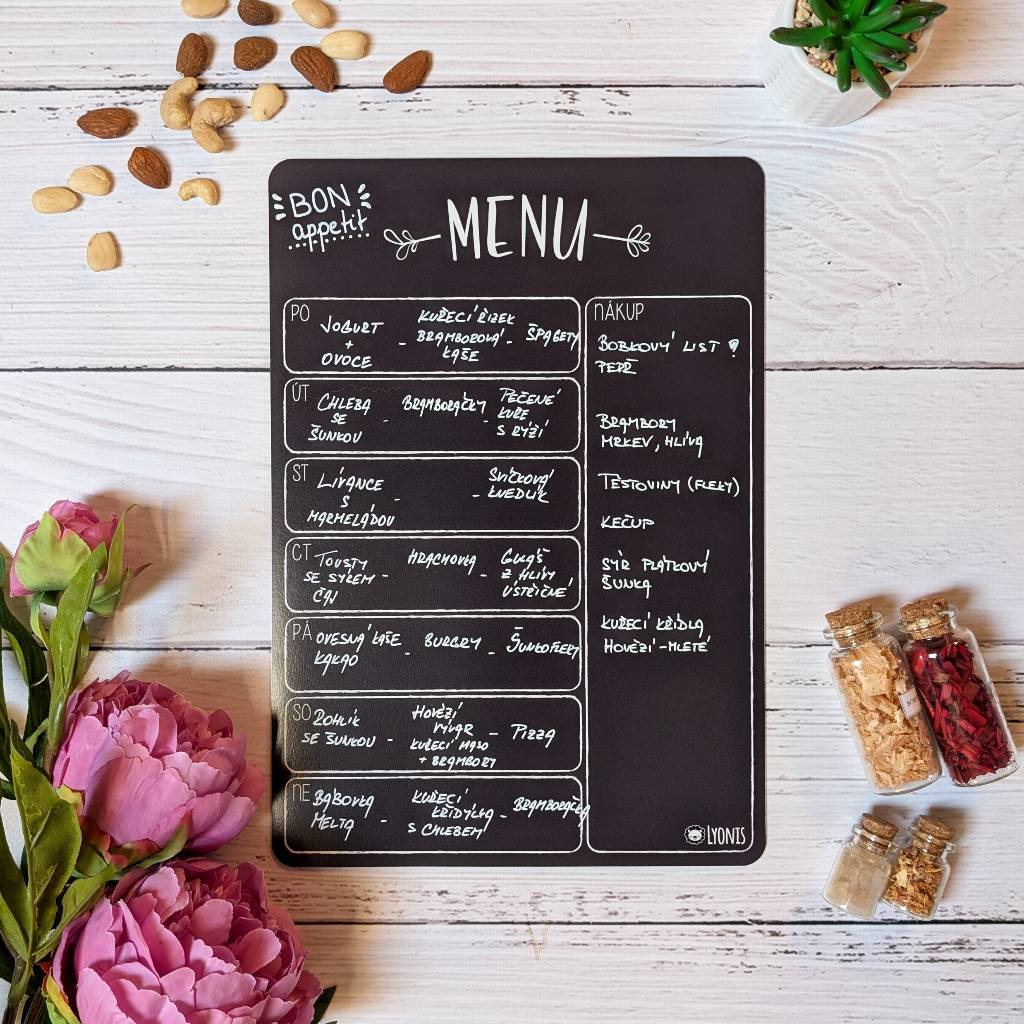 BON
appetit
MENU
PO
JOGURT
+
OVOCE
-
KUŘECÍ ŘÍZEK
BRAMBOROVÁ
KAŠE
-
ŠPAGETY
ÚT
CHLEBA
SE
ŠUNKOU
-
BRAMBORAČKY
-
PEČENÉ
KUŘE
S RÝŽÍ
ST
LÍVANCE
S
MARMELÁDOU
-
-
SVÍČKOVÁ
KNEDLÍK
ČT
TOUSTY
SE SÝREM
ČAJ
-
HRACHOVKA
-
GULÁŠ
Z HLÍVY
ÚSTŘIČNÉ
PÁ
OVESNÁ KAŠE
KAKAO
-
BURGRY
-
ŠUNKOFLEKY
SO
ROHLÍK
SE ŠUNKOU
-
HOVĚZÍ
VÝVAR
KUŘECÍ MASO
+ BRAMBORY
-
PIZZA
NE
BÁBOVKA
MELTA
-
KUŘECÍ
KŘÍDÝLKA
S CHLEBEM
-
BRAMBORAČKA
NÁKUP
BOBKOVÝ LIST !
PEPŘ
BRAMBORY
MRKEV, HLÍVA
TĚSTOVINY (FLEKY)
KEČUP
SÝR PLÁTKOVÝ
ŠUNKA
KUŘECÍ KŘÍDLA
HOVĚZÍ - MLETÉ
LYONIS